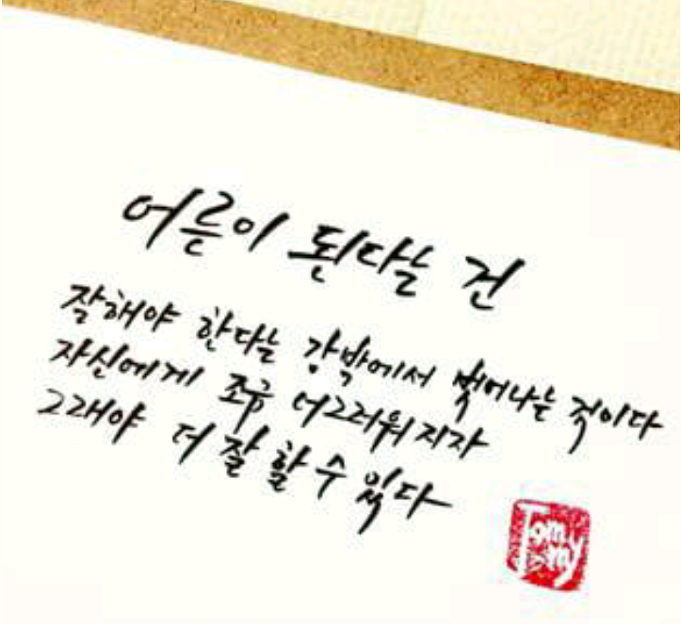 어른이 된다는 건
잘해야 한다는 강박에서 벗어나는 것이다
자신에게 조금 너그러워지자
그래야 더 잘 할 수 있다
Tommy